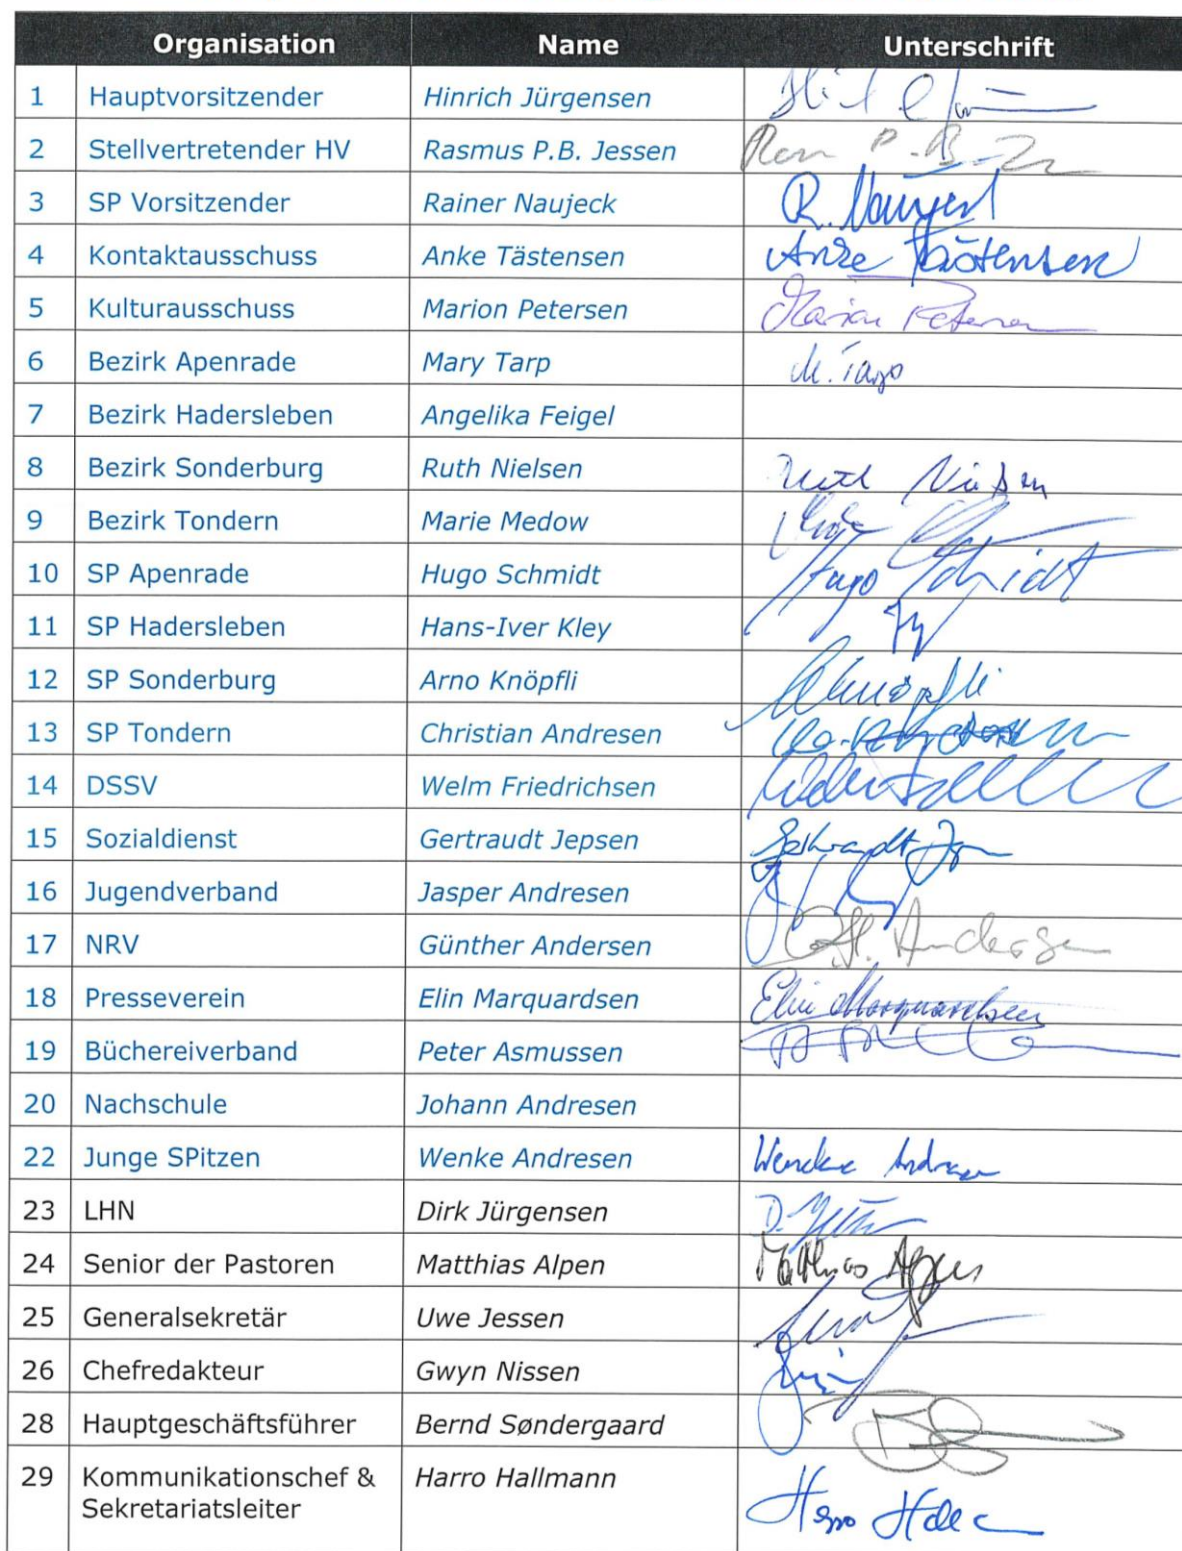 Organisation Name Unterschrift
1 Hauptvorsitzender Hinrich Jürgensen
2 Stellvertretender HV Rasmus P.B. Jessen
3 SP Vorsitzender Rainer Naujeck R. Naujeck
4 Kontaktausschuss Anke Tästensen Anke Tästensen
5 Kulturausschuss Marion Petersen Marion Petersen
6 Bezirk Apenrade Mary Tarp M. Tarp
7 Bezirk Hadersleben Angelika Feigel
8 Bezirk Sonderburg Ruth Nielsen Ruth Nielsen
9 Bezirk Tondern Marie Medow
10 SP Apenrade Hugo Schmidt Hugo Schmidt
11 SP Hadersleben Hans-Iver Kley
12 SP Sonderburg Arno Knöpfli AKnöpfli
13 SP Tondern Christian Andresen
14 DSSV Welm Friedrichsen
15 Sozialdienst Gertraudt Jepsen
16 Jugendverband Jasper Andresen
17 NRV Günther Andersen Andersen
18 Presseverein Elin Marquardsen Elin Marquardsen
19 Büchereiverband Peter Asmussen
20 Nachschule Johann Andresen
22 Junge SPitzen Wenke Andresen Wencke Andresen
23 LHN Dirk Jürgensen
24 Senior der Pastoren Matthias Alpen Matthias Alpen
25 Generalsekretär Uwe Jessen
26 Chefredakteur Gwyn Nissen
28 Hauptgeschäftsführer Bernd Søndergaard
29 Kommunikationschef & Harro Hallmann
Sekretariatsleiter